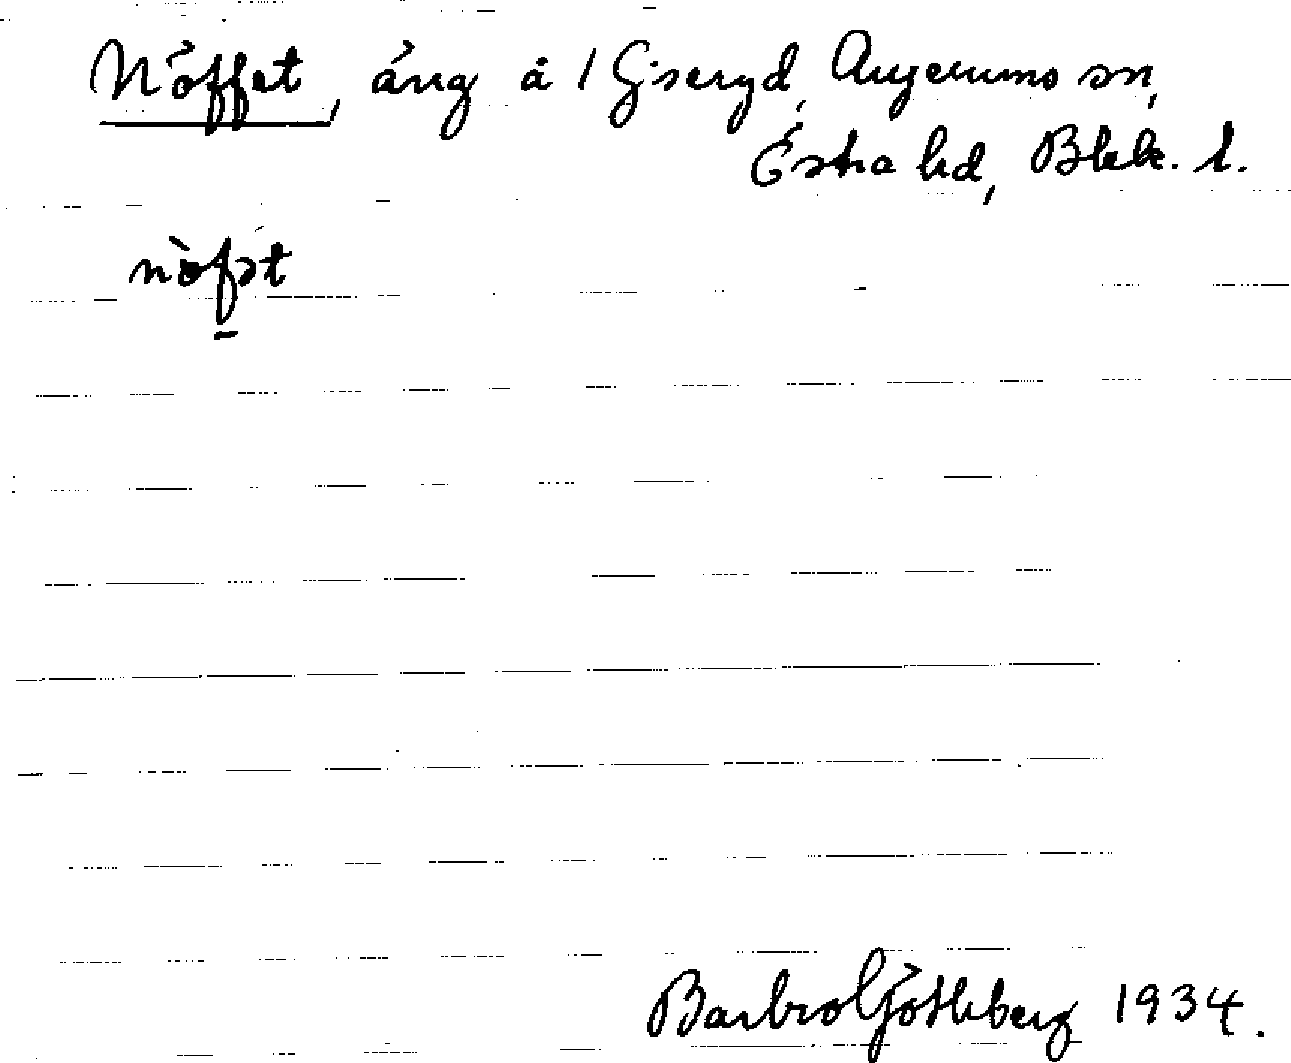 Nöffet, äng å 1 Giseryd, Augerums sn,
Östra hd, Blek. l.
nö̀fət
Barbro Göthberg 1934.